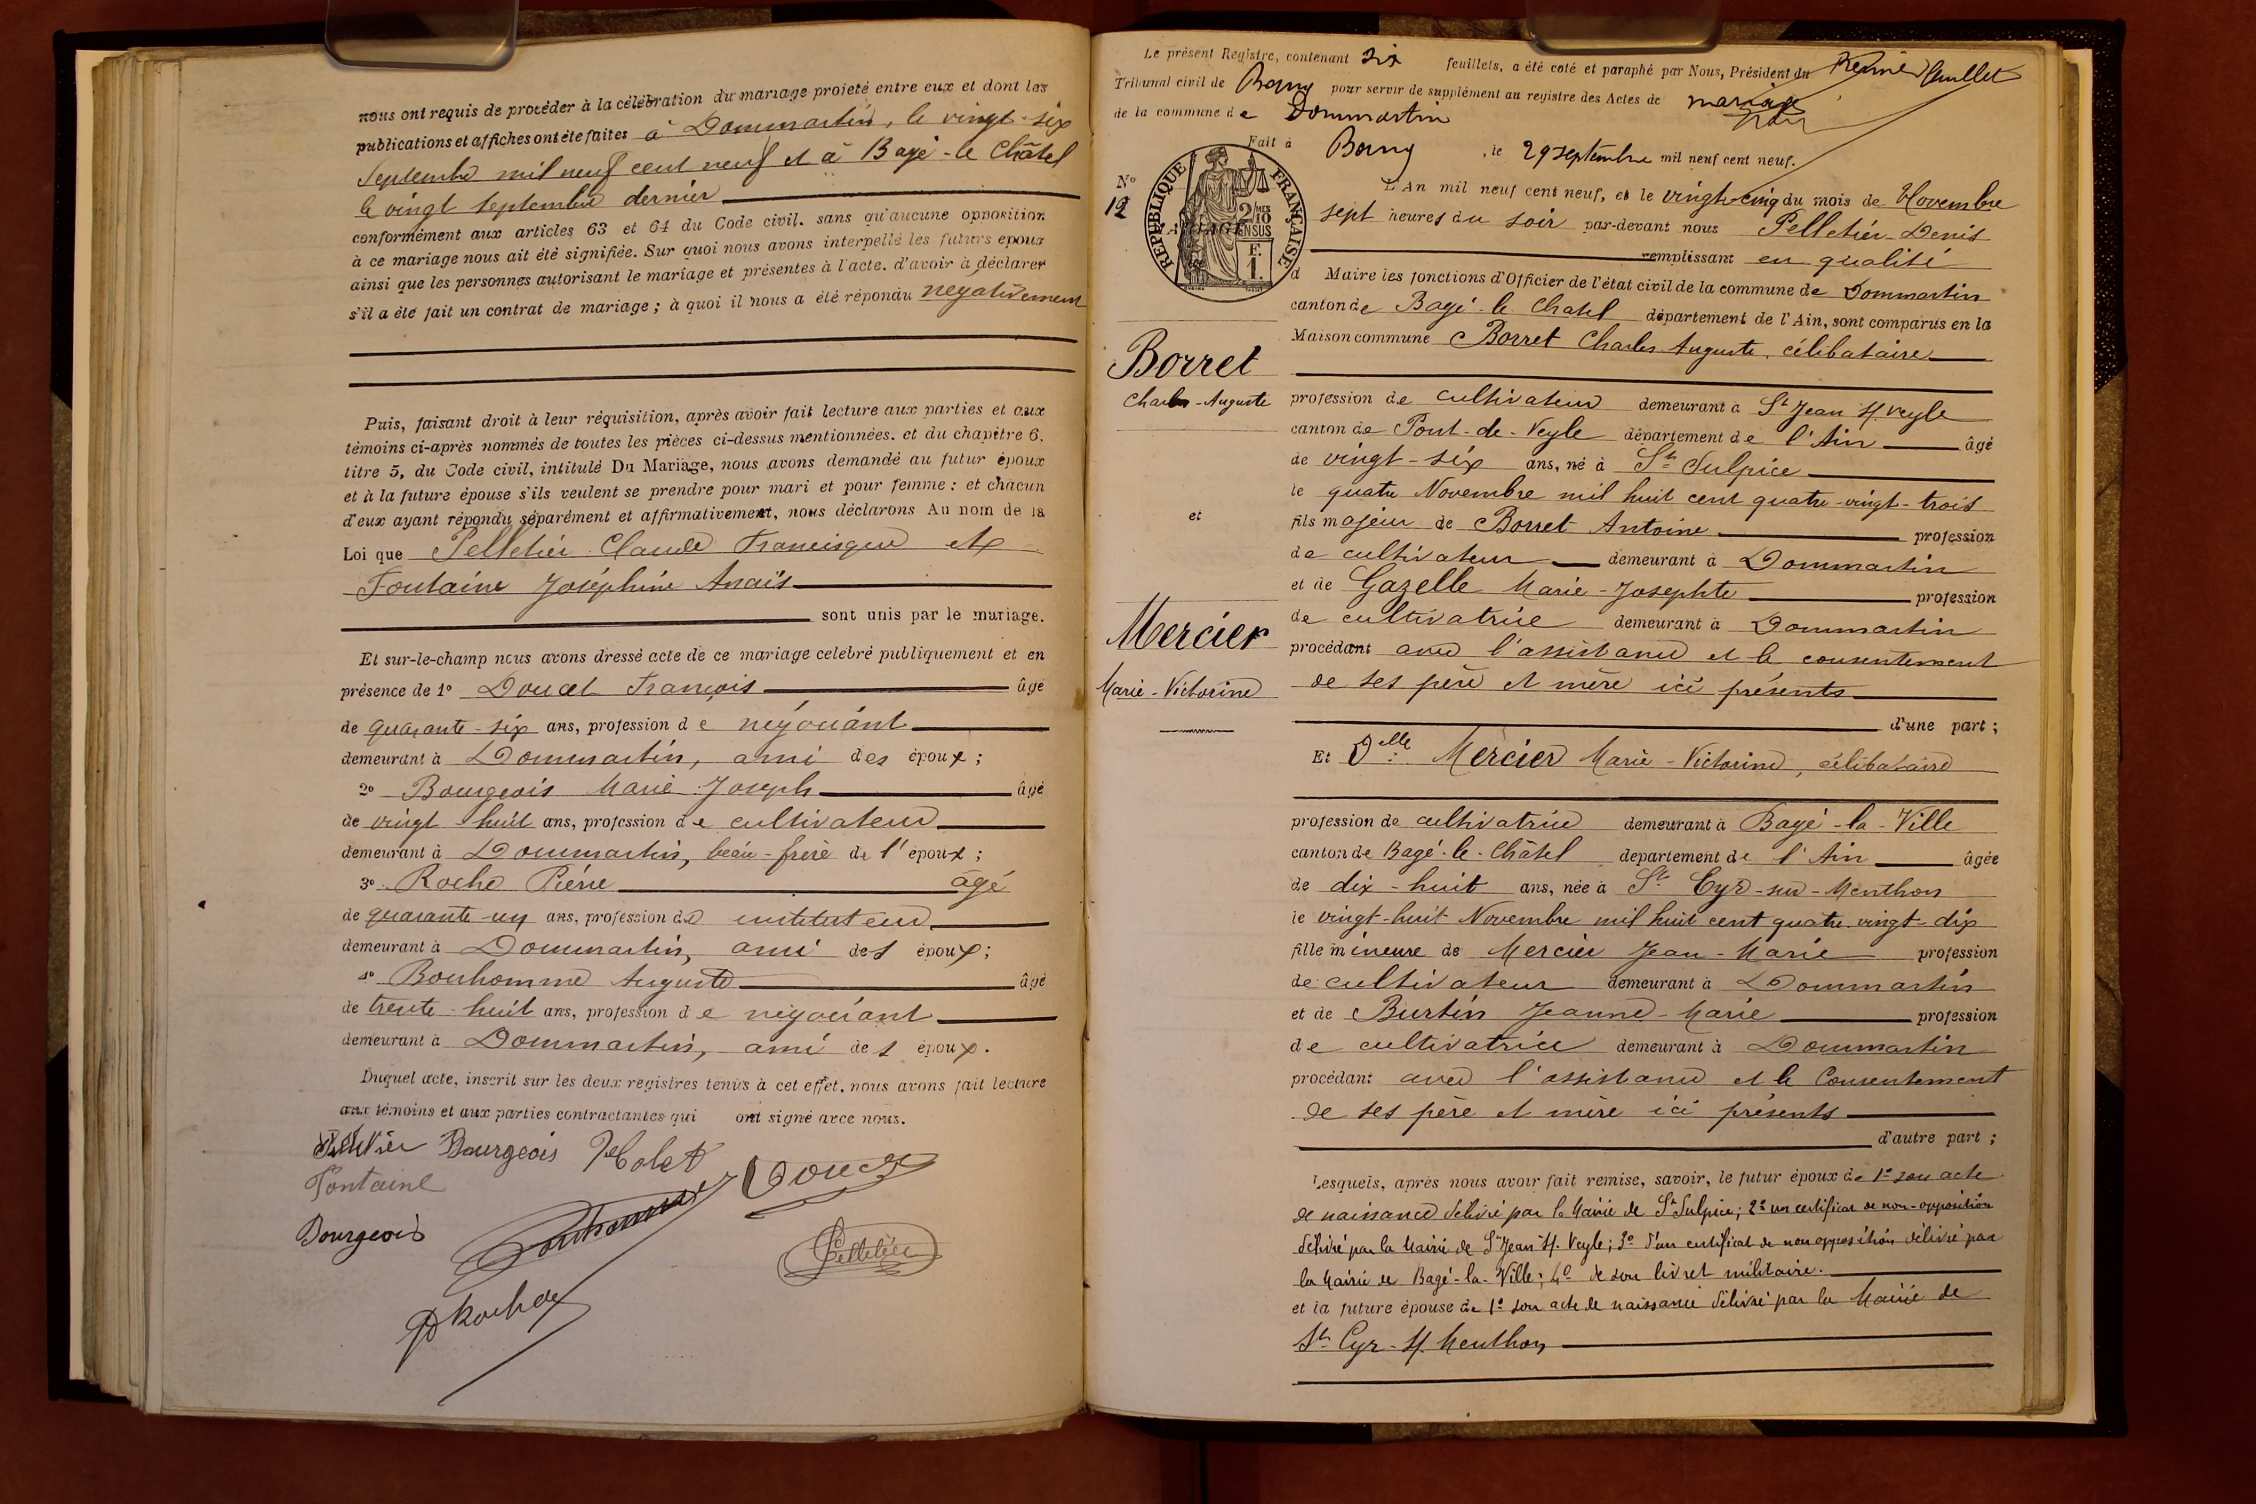 nous ont requis de procéder à la célébration du mariage projeté entre eux et dont les
publications et affiches ont été faites à Dommartin, le vingt-six
Septembre mil neuf cent neuf et à Bagé-le Châtel
le vingt Septembre dernier
conformément aux articles 63 et 64 du Code civil. sans qu'aucune opposition
à ce mariage nous ait été signifiée. Sur quoi nous avons interpellé les futurs époux
ainsi que les personnes autorisant le mariage et présentes à l'acte. d'avoir à déclarer
s'il a été fait un contrat de mariage ; à quoi il nous a été répondu négativement
Puis, faisant droit à leur réquisition, après avoir fait lecture aux parties et aux
témoins ci-après nommés de toutes les pièces ci-dessus mentionnées. et du chapitre 6,
titre 5, du Code civil, intitulé Du Mariage, nous avons demandé au futur époux
et à la future épouse s'ils veulent se prendre pour mari et pour femme : et chacun
d'eux ayant répondu séparément et affirmativement, nous déclarons Au nom de la
Loi que Pelletier Claude Francisque et
Fontaine Joséphine Anaïs
sont unis par le mariage.
Et sur-le-champ nous avons dressé acte de ce mariage célébré publiquement et en
présence de 1º Doucet François âgé
de quarante-six ans, profession de négociant
demeurant à Dommartin, ami des époux ;
2º Bourgeois Marie Joseph âgé
de vingt-huit ans, profession de cultivateur
demeurant à Dommartin, beau-frère de l'époux ;
3º Roche Pierre âgé
de quarante-un ans, profession de instituteur
demeurant à Dommartin, ami des époux ;
4º Bonhomme Auguste âgé
de trente-huit ans, profession de négociant
demeurant à Dommartin, ami des époux.
Duquel acte, inscrit sur les deux registres tenus à cet effet, nous avons fait lecture
aux témoins et aux parties contractantes qui ont signé avec nous.
Pelletier Bourgeois
Fontaine Doucet
Bourgeois Bonhomme
Pelletier
P Roche
Le présent Registre, contenant six feuillets, a été coté et paraphé par Nous, Président du Premier feuillet
Tribunal civil de Bourg pour servir de supplément au registre des Actes de mariage
de la commune de Dommartin
Fait à Bourg, le 29 septembre mil neuf cent neuf.
RÉPUBLIQUE FRANÇAISE
2/10 EN SUS
F. 1.
Nº 12
L'An mil neuf cent neuf, et le vingt-cinq du mois de Novembre
sept heures du soir par-devant nous Pelletier Denis
remplissant en qualité
d Maire les fonctions d'Officier de l'état civil de la commune de Dommartin
canton de Bagé-le Chatel département de l'Ain, sont comparus en la
Maison commune Borret Charles Auguste, célibataire
Borret
Charles-Auguste
et
Mercier
Marie-Victorine
profession de cultivateur demeurant à St Jean s/. Veyle
canton de Pont-de-Veyle département de l'Ain âgé
de vingt-six ans, né à St Sulpice
le quatre Novembre mil huit cent quatre-vingt-trois
fils majeur de Borret Antoine profession
de cultivateur demeurant à Dommartin
et de Gazelle Marie-Josephte profession
de cultivatrice demeurant à Dommartin
procédant avec l'assistance et le consentement
de ses père et mère ici présents
d'une part ;
Et Delle Mercier Marie-Victorine, célibataire
profession de cultivatrice demeurant à Bagé-la-Ville
canton de Bagé-le-Châtel département de l'Ain âgée
de dix-huit ans, née à St Cyr-sur-Menthon
le vingt-huit Novembre mil huit cent quatre vingt-dix
fille mineure de Mercier Jean-Marie profession
de cultivateur demeurant à Dommartin
et de Burtin Jeanne-Marie profession
de cultivatrice demeurant à Dommartin
procédant avec l'assistance et le Consentement
de ses père et mère ici présents
d'autre part ;
Lesquels, après nous avoir fait remise, savoir, le futur époux de 1º son acte
de naissance délivré par la Mairie de St Sulpice ; 2º un certificat de non-opposition
délivré par la Mairie de St Jean s/. Veyle ; 3º d'un certificat de non opposition délivré par
la Mairie de Bagé-la-Ville ; 4º de son livret militaire.
et la future épouse de 1º son acte de naissance délivré par la Mairie de
St Cyr-s/. Menthon